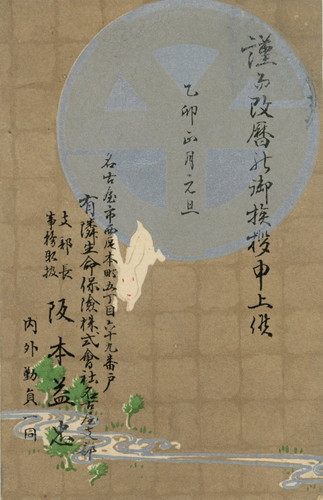 謹而改暦之御挨拶申上候
乙卯正月元旦
名古屋市西区木町五丁目六十九番戸
有隣生命保険株式會社名古屋支部
支部長
事務取扱
阪本益忠
内外勤員一同